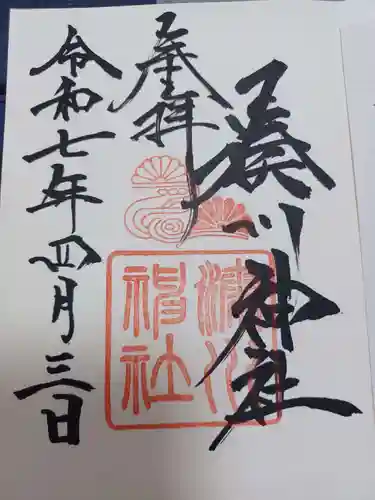 湊川神社
奉拝
令和七年四月三日
湊川神社